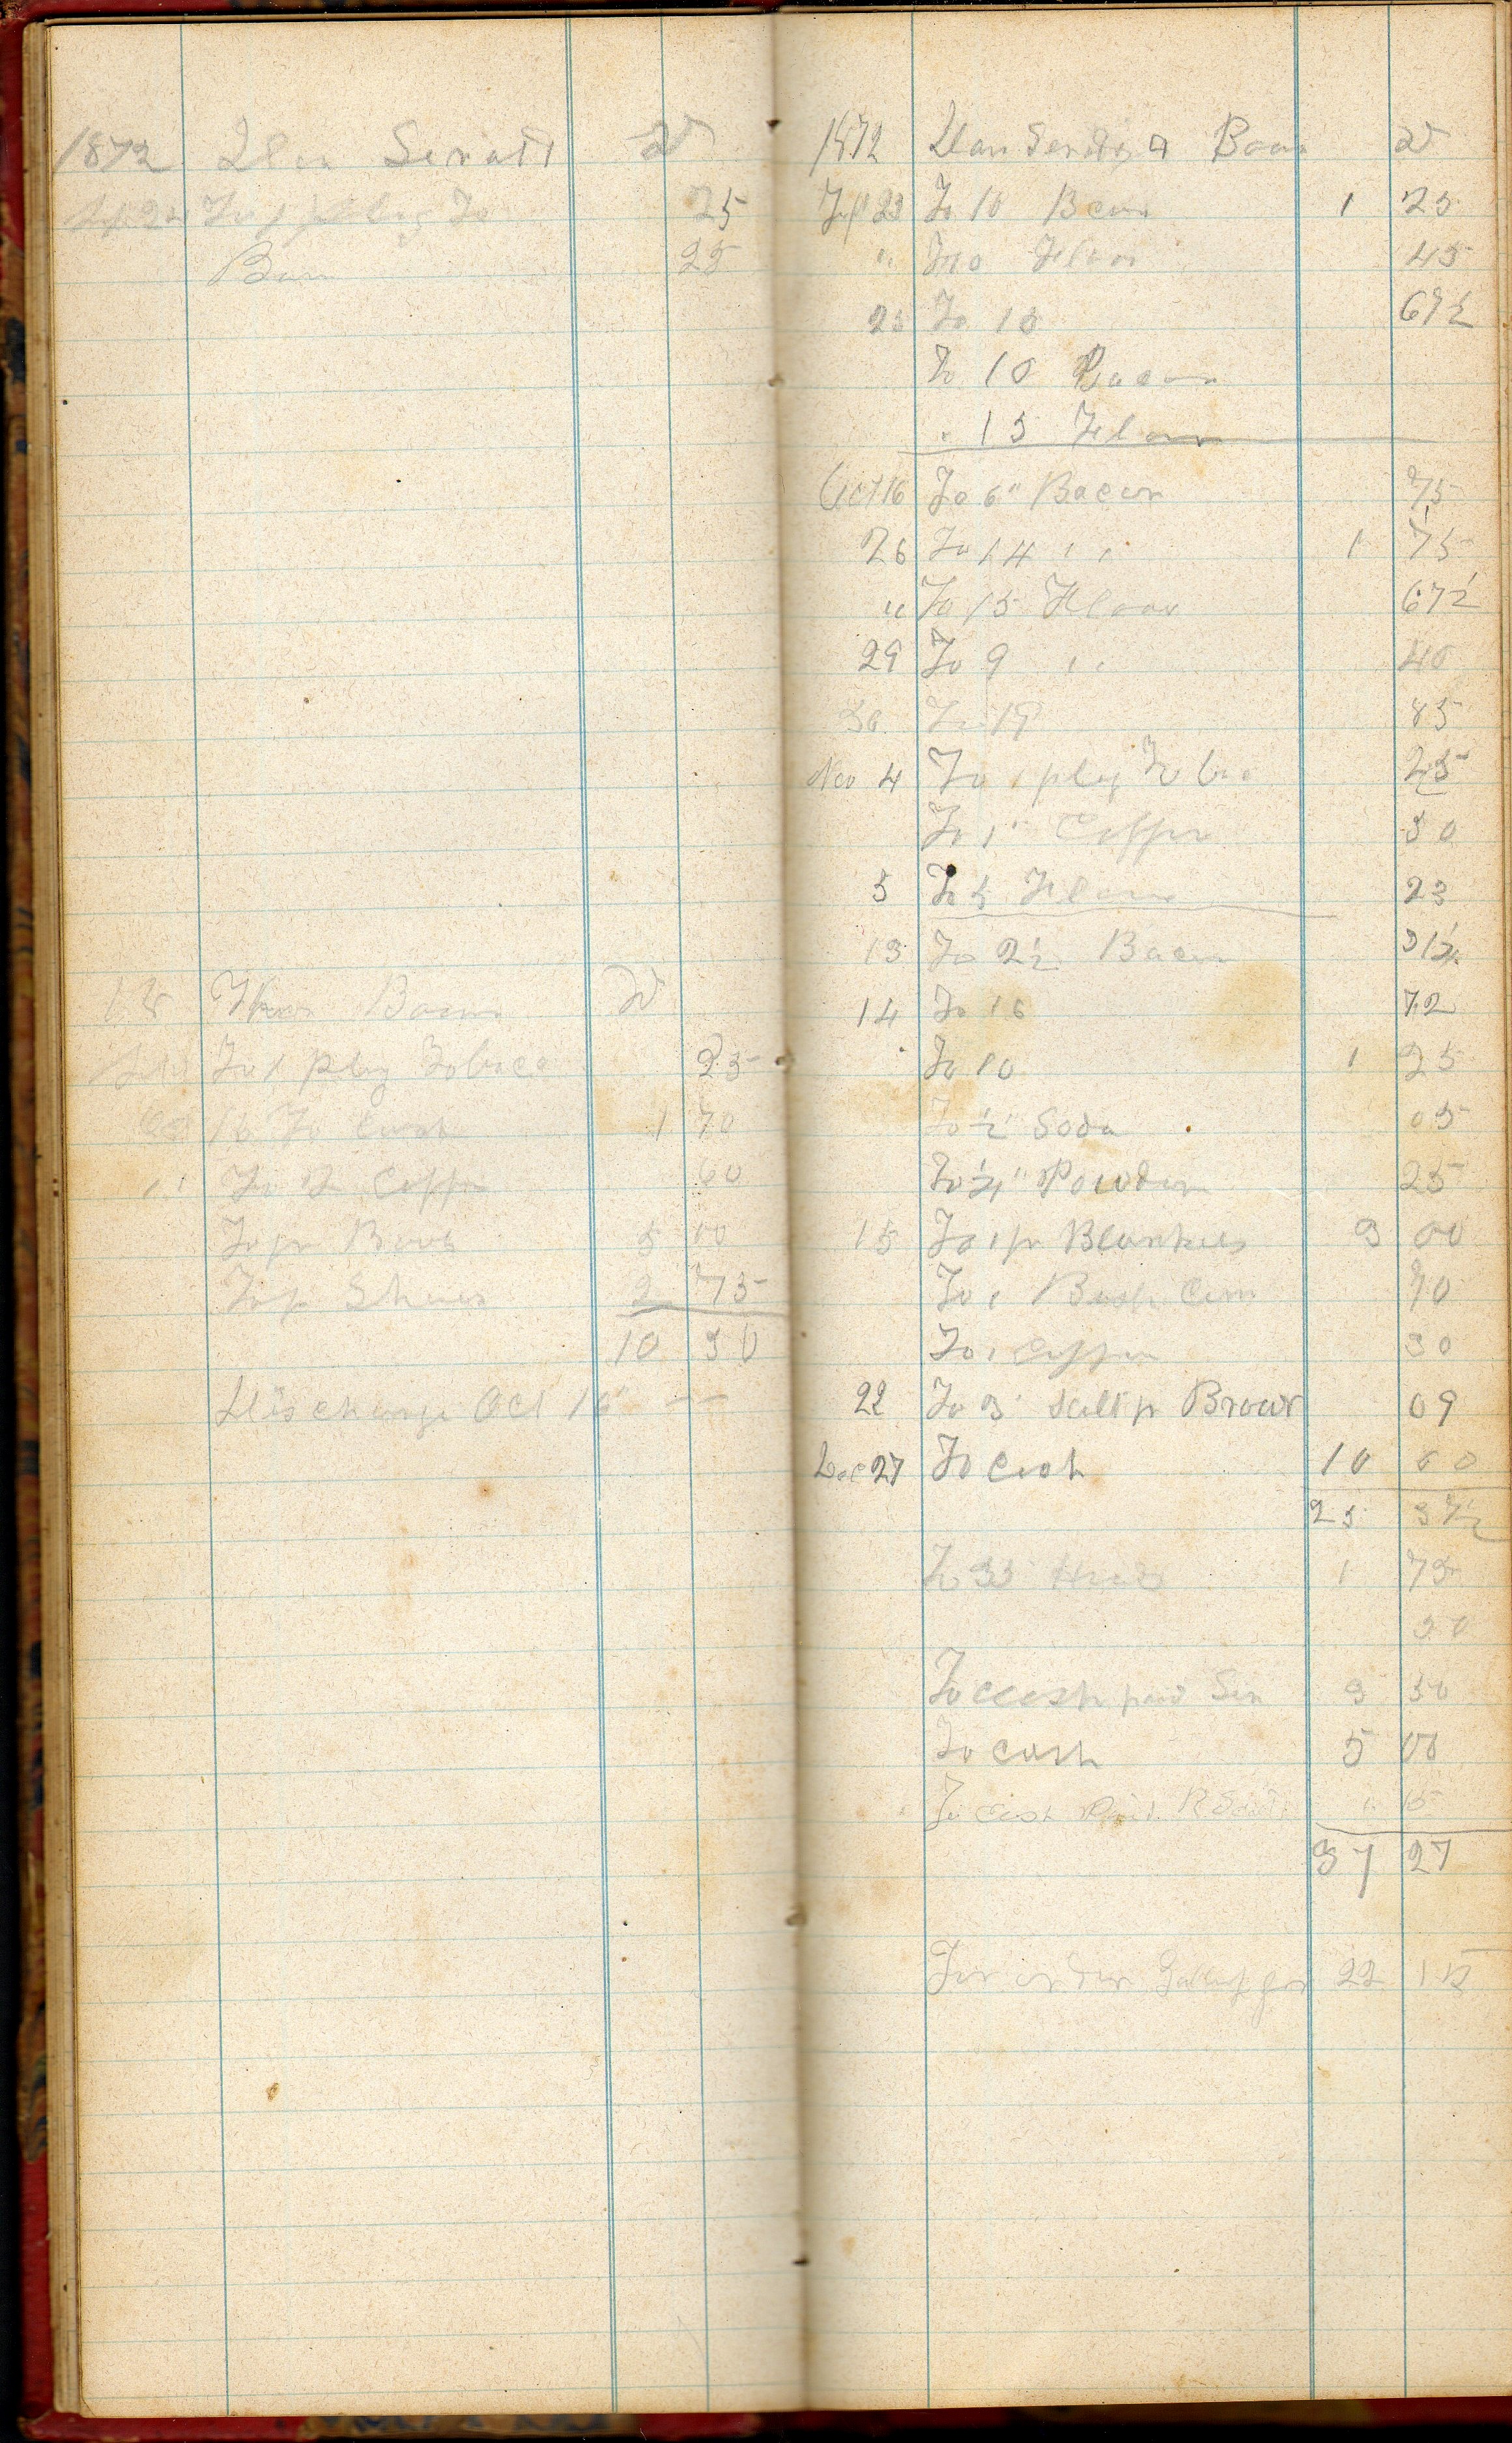 1872 Dan Dr
To 1 plug To 25
25
Bacon Dr
To 1 Plug Tobacco 25
16 To Cash 1 70
" To Coffe 60
To pr Boots 5 00
To pr Shoes 2 75
10 30
Discharge Oct 16
1872 Dan & Dr
Sept 23 To 10 Bacon 1 25
" To 10 Flour 45
25 To 15 67½
To 10 Bacon
" 15 Flour
Oct 16 To 6" Bacon 75
26 To 14 " 1 75
" To 15 Flour 67½
29 To 9 " 40
30 To 19 85
Nov 4 To 1 plug Tobac 25
To 1" Coffee 30
5 To 5 Flour 23
13 To 2½ Bacon 31½
14 To 16 72
To 10 1 25
To ½" Soda 05
To ½" Powder 25
15 To 1 pr Blankets 3 00
To 1 Bush Corn 70
To 1 Coffee 30
22 To 3 Salt pr Brown 09
Dec 27 To Cash 10 00
25 37½
To 35 1 75
To cash paid 3 50
To cash 5 00
To Cash Paid 15
37 27
For order for 22